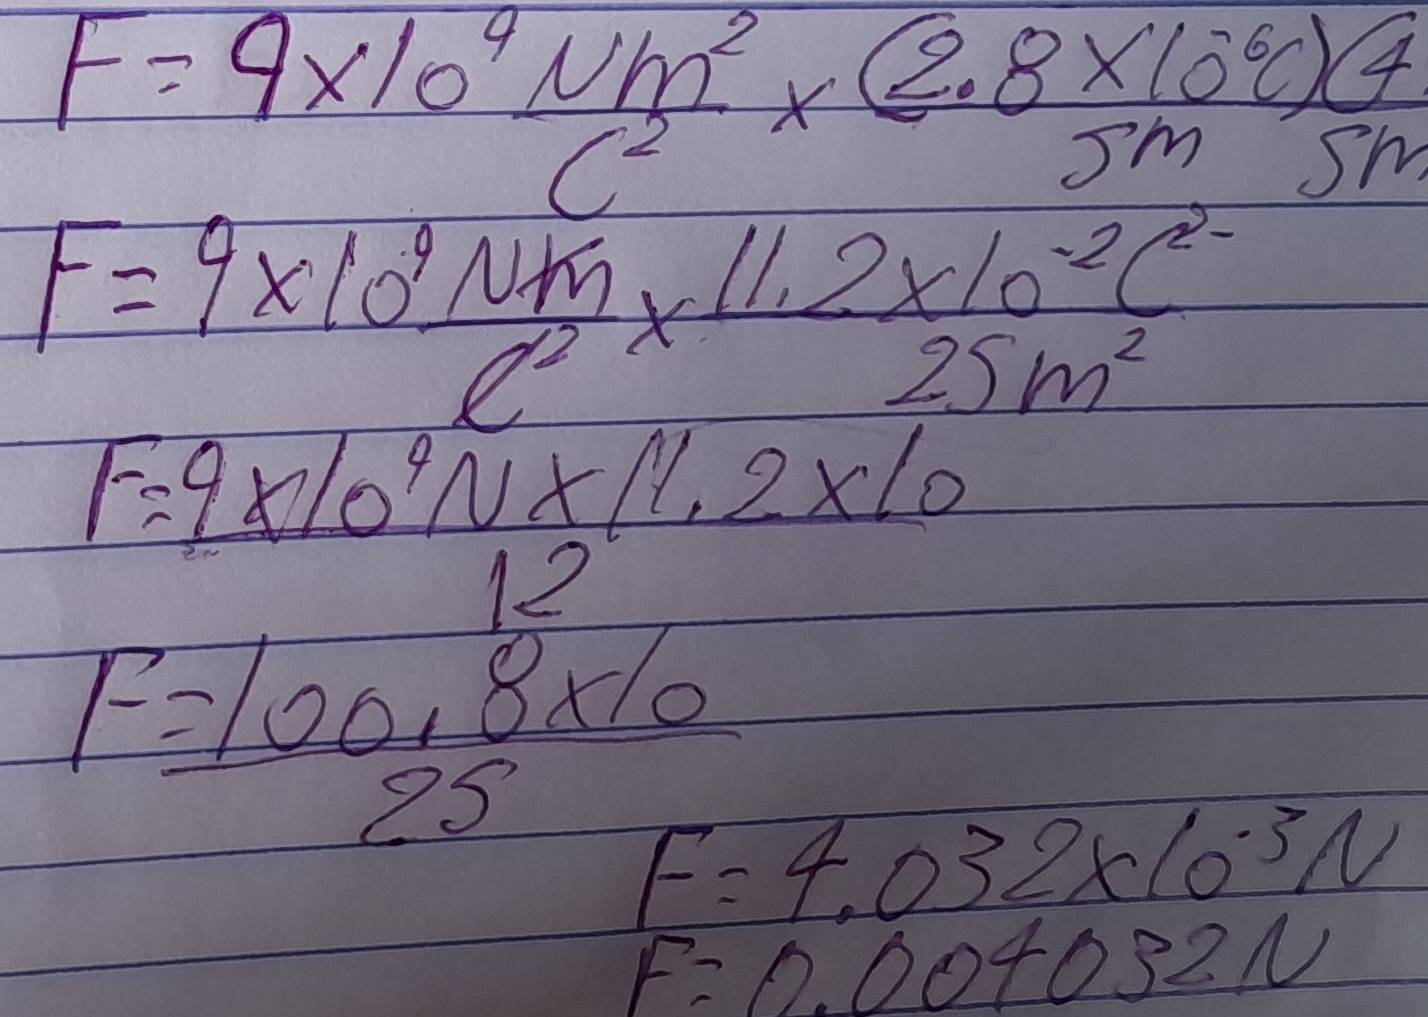 F = 9x10⁹ Nm²/C² x (2.8 X 10⁻⁶C)(4/5m 5m
F = 9x10⁹ Nm/C² x 11.2x10⁻²C²⁻/25m²
F = 9x10⁹N x 11.2x10/12
F = 100.8x10/25
F = 4.032x10⁻³N
F = 0.004032N